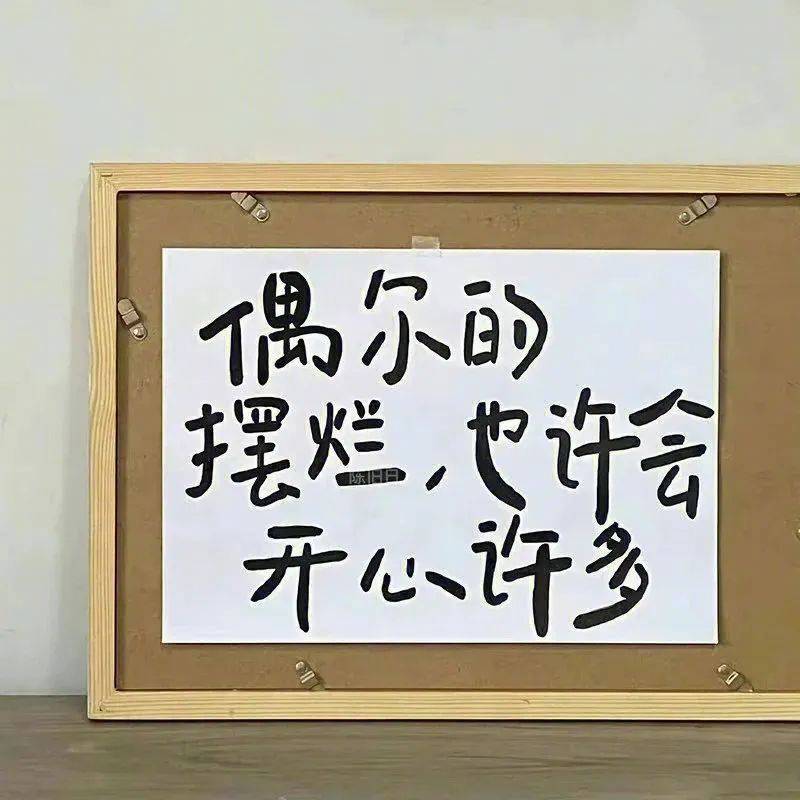 偶尔的
摆烂，也许会
陈旧日
开心许多